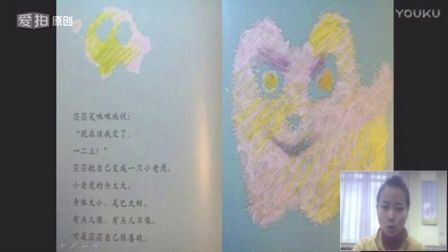 爱拍 原创
YOUKU
茫茫笑咪咪地说：
“现在该我变了，
一二三！”
茫茫把自己变成一只小老虎，
小老虎的头太大，
身体太小，尾巴太粗，
有点儿像，有点儿不像，
可是茫茫自己很喜欢。